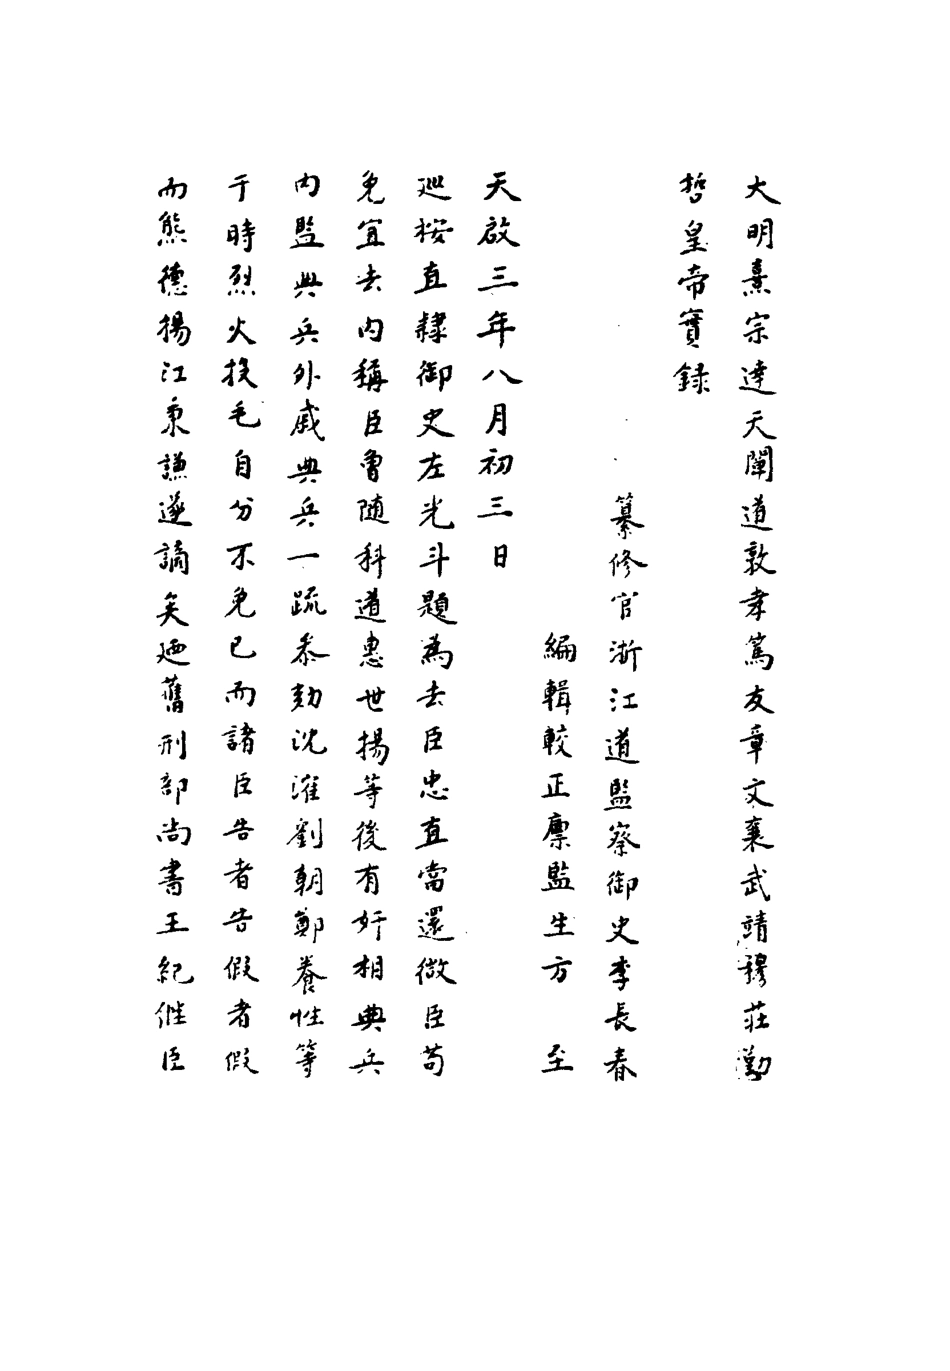 大明熹宗達天闡道敦孝篤友章文襄武靖穆莊勤
悊皇帝實錄
纂修官浙江道監察御史李長春
編輯較正廪監生方　至
天啟三年八月初三日
廵按直隸御史左光斗題為去臣忠直當還微臣苟
免宜去內稱臣曾随科道惠世揚等後有奸相典兵
内監典兵外戚典兵一疏叅劾沈漼劉朝鄭養性等
于時烈火扠毛自分不免已而諸臣告者告假者假
而熊德揚江秉謙遂謫矣廼舊刑部尚書王紀繼臣